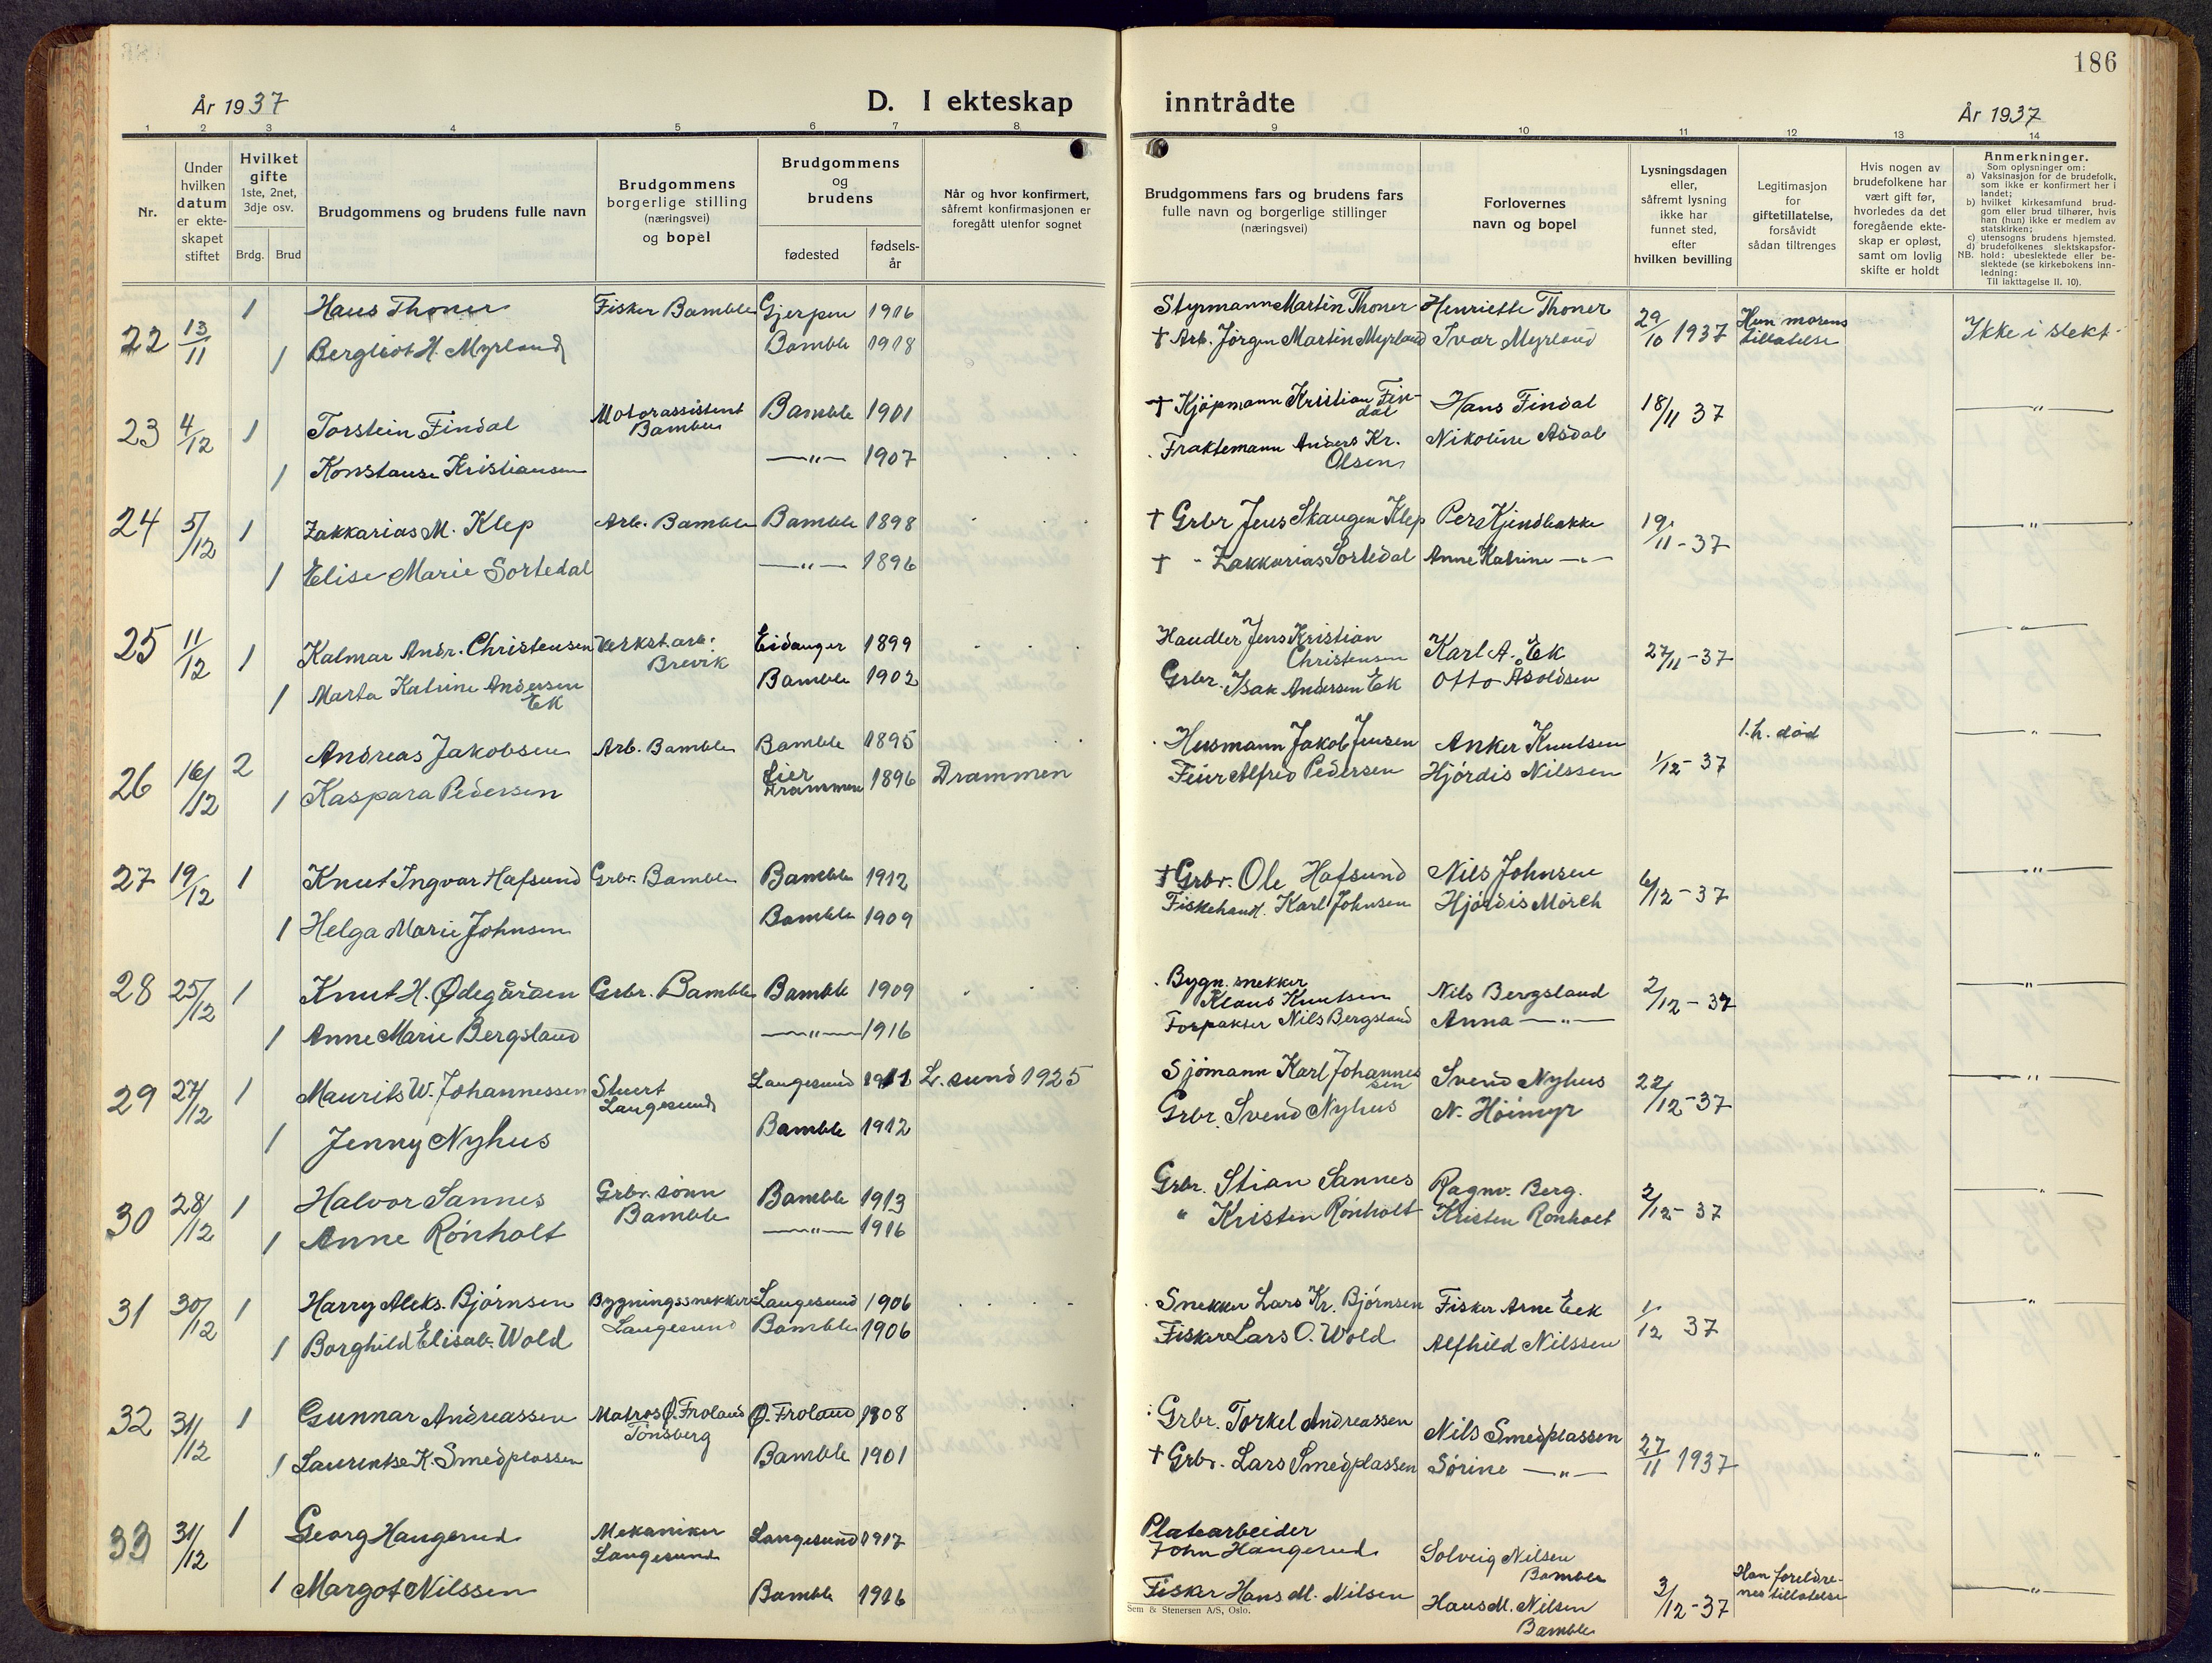 186
År 1937
D. I ekteskap inntrådte
År 1937
1 2 3 4 5 6 7 8 9 10 11 12 13 14
Nr.
Under hvilken datum er ekteskapet stiftet
Hvilket gifte 1ste, 2net, 3dje osv.
Brdg. Brud
Brudgommens og brudens fulle navn
Brudgommens borgerlige stilling (næringsvei) og bopel
Brudgommens og brudens
fødested
fødselsår
Når og hvor konfirmert, såfremt konfirmasjonen er foregått utenfor sognet
Brudgommens fars og brudens fars fulle navn og borgerlige stillinger (næringsvei)
Forlovernes navn og bopel
Lysningsdagen eller, såfremt lysning ikke har funnet sted, efter hvilken bevilling
Legitimasjon for giftetillatelse, forsåvidt sådan tiltrenges
Hvis nogen av brudefolkene har vært gift før, hvorledes da det foregående ekteskap er opløst, samt om lovlig skifte er holdt
Anmerkninger.
Som oplysninger om:
a) Vaksinasjon for de brudefolk, som ikke er konfirmert her i landet;
b) hvilket kirkesamfund brudgom eller brud tilhører, hvis han (hun) ikke er medlem av statskirken;
c) utensogns brudens hjemsted.
d) brudefolkenes slektskapsforhold: ubeslektede eller beslektede (se kirkebokens innledning:
NB.
Til iakttagelse II. 10).
22 13/11 1 Hans Thoner Fisker Bamble Gjerpen 1916 Styrmann Martin Thoner Henriette Thoner 29/10 1937 Hun morens tillatelse Ikke i slekt
1 Bergliot H. Myrland Bamble 1918 † Arb. Jørgen Martin Myrland Ivar Myrland
23 4/12 1 Torstein Findal Motorassistent Bamble Bamble 1901 † Kjøpmann Kristian Findal Hans Findal 18/11 37 —"—
1 Konstanse Kristiansen —"— 1907 Fraktemann Anders Kr. Olsen Nikoline Asdal
24 5/12 1 Zakkarias M. Klep Arb. Bamble Bamble 1898 † Grbr Jens Skaugen Klep Pers Kjendbakke 19/11-37 —"—
1 Elise Marie Sortedal —"— 1896 † - Zakkarias Sortedal Anne Katrine —"—
25 11/12 1 Kalmar Andr. Christensen Verkst.arb. Brevik Eidanger 1899 Handler Jens Kristian Christensen Karl A. Ek 27/11-37 —"—
1 Marta Katrine Andersen Ek Bamble 1902 Grbr. Isak Andersen Ek Otto Åsoldsen
26 16/12 2 Andreas Jakobsen Arb. Bamble Bamble 1895 Husmann Jakob Jensen Anker Knutsen 1/12-37 1.h. død —"—
1 Kaspara Pedersen Lier Drammen 1896 Drammen Feier Alfred Pedersen Hjördis Nilssen
27 19/12 1 Knut Ingvar Hafsund Grbr. Bamble Bamble 1912 † Grbr. Ole Hafsund Nils Johnsen 6/12-37 —"—
1 Helga Marie Johnsen Bamble 1909 Fiskehand. Karl Johnsen Hjördis Mörch
28 25/12 1 Knut H. Ødegården Grbr. Bamble Bamble 1909 Bygn. snekker Klaus Knutsen Nils Bergsland 2/12-37 —"—
1 Anne Marie Bergsland —"— 1916 Forpakter Nils Bergsland Anna —"—
29 27/12 1 Maurits W. Johannessen Stuert Langesund Langesund 1911 L.sund 1925 Sjömann Karl Johannessen Svend Nyhus 22/12-37 —"—
1 Jenny Nyhus Bamble 1912 Grbr. Svend Nyhus N. Höimyr
30 28/12 1 Halvor Sannes Grbr. sönn Bamble Bamble 1913 Grbr. Stian Sannes Ragnv. Berg. 2/12-37 —"—
1 Anne Rönholt —"— 1916 " Kristen Rönholt Kristen Rönholt
31 30/12 1 Harry Aleks. Björnsen Bygningssnekker Langesund Langesund 1906 Snekker Lars Kr. Björnsen Fisker Arne Eek 1/12 37 —"—
1 Borghild Elisab. Wold Bamble 1906 Fisker Lars O. Wold Alfhild Nilssen
32 31/12 1 Gunnar Andreassen Matros Ø. Froland Tönsberg Ø. Froland 1908 Grbr. Torkel Andreassen Nils Smedplassen 27/11 1937 —"—
1 Laurentse K. Smedplassen Bamble 1901 † Grbr. Lars Smedplassen Sörine —"—
33 31/12 1 Georg Haugerud Mekaniker Langesund Langesund 1917 Platearbeider John Haugerud Solveig Nilsen Bamble 3/12-37 Han foreldrenes tillatelse —"—
1 Margot Nilssen Bamble 1916 Fisker Hans M. Nilsen Hans M. Nilsen Bamble
Sem & Stenersen A/S, Oslo.